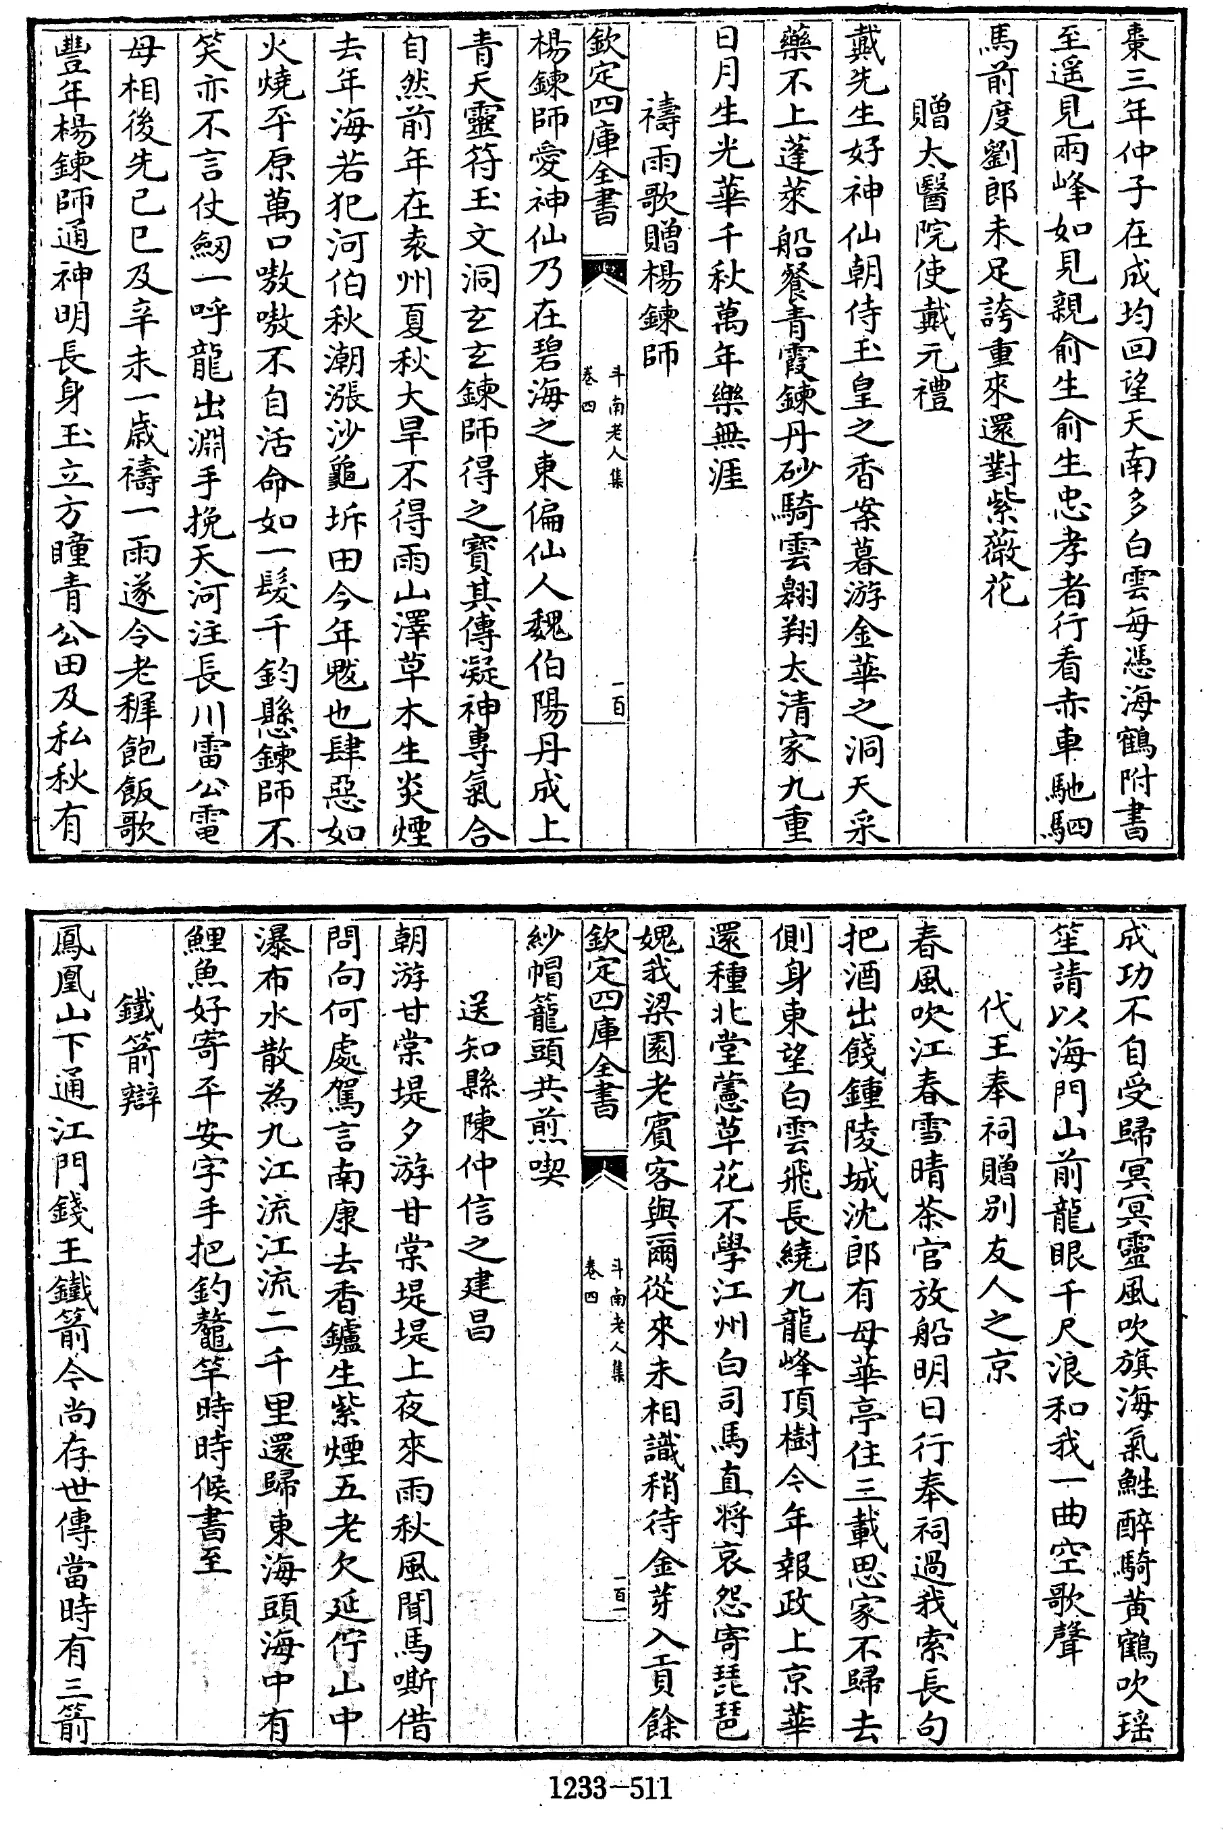 棗三年仲子在成均回望天南多白雲每憑海鶴附書
至遥見兩峰如見親俞生俞生忠孝者行看赤車馳駟
馬前度劉郎未足誇重來還對紫薇花
贈太醫院使戴元禮
戴先生好神仙朝侍玉皇之香案暮游金華之洞天采
藥不上蓬萊船餐青霞鍊丹砂騎雲翱翔太清家九重
日月生光華千秋萬年樂無涯
禱雨歌贈楊鍊師
欽定四庫全書
斗南老人集
卷四
一百
楊鍊師愛神仙乃在碧海之東偏仙人魏伯陽丹成上
青天靈符玉文洞玄玄鍊師得之寶其傳凝神專氣合
自然前年在袁州夏秋大旱不得雨山澤草木生炎煙
去年海若犯河伯秋潮漲沙龜坼田今年魃也肆惡如
火燒平原萬口嗷嗷不自活命如一髮千鈞懸鍊師不
笑亦不言仗劒一呼龍出淵手挽天河注長川雷公電
母相後先己巳及辛未一歲禱一雨遂令老穉飽飯歌
豐年楊鍊師通神明長身玉立方瞳青公田及私秋有
成功不自受歸冥冥靈風吹旗海氣鮏醉騎黄鶴吹瑶
笙請以海門山前龍眼千尺浪和我一曲空歌聲
代王奉祠贈别友人之京
春風吹江春雪晴茶官放船明日行奉祠過我索長句
把酒出餞鍾陵城沈郎有母華亭住三載思家不歸去
側身東望白雲飛長繞九龍峰頂樹今年報政上京華
還種北堂薏草花不學江州白司馬直將哀怨寄琵琶
媿我梁園老賓客與爾從來未相識稍待金芽入貢餘
欽定四庫全書
斗南老人集
卷四
一百一
紗帽籠頭共煎喫
送知縣陳仲信之建昌
朝游甘棠堤夕游甘棠堤堤上夜來雨秋風聞馬嘶借
問向何處駕言南康去香鑪生紫煙五老久延佇山中
瀑布水散為九江流江流二千里還歸東海頭海中有
鯉魚好寄平安字手把釣鼇竿時時候書至
鐵箭辯
鳳凰山下通江門錢王鐵箭今尚存世傳當時有三箭
1233-511